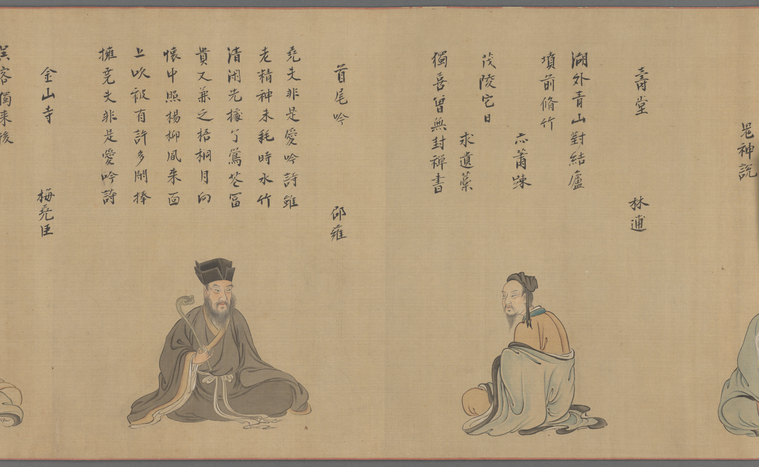 神説
壽堂
林逋
湖外青山對結廬
墳前脩竹
亦蕭踈
茂陵它日
求遺藁
獨喜曾無封禅書
首尾吟
邵雍
堯夫非是愛吟詩雖
老精神未耗時水竹
清閑先據了鶯花富
貴又兼之梧桐月向
懷中照楊柳風來面
上吹被有許多閑捧
擁堯夫非是愛吟詩
金山寺
梅堯臣
客獨來後